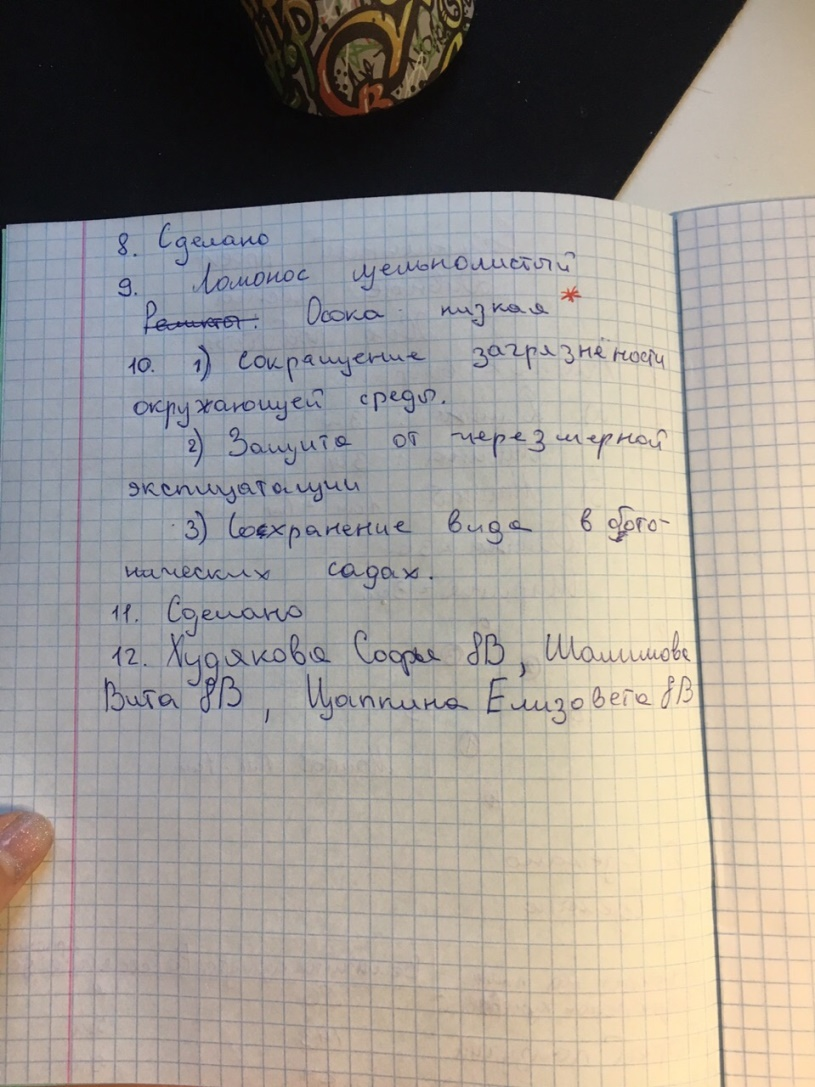 8. Сделано
9. Ломонос цельнолистый
Реликты: Осока низкая *
10. 1) Сокращение загрязнёности
окружающей среды.
2) Защита от черезмерной
эксплуатации
3) Сохранение вида в бота-
нических садах.
11. Сделано
12. Худякова Софья 8В, Шалимова
Вита 8В, Цаплина Елизовета 8В